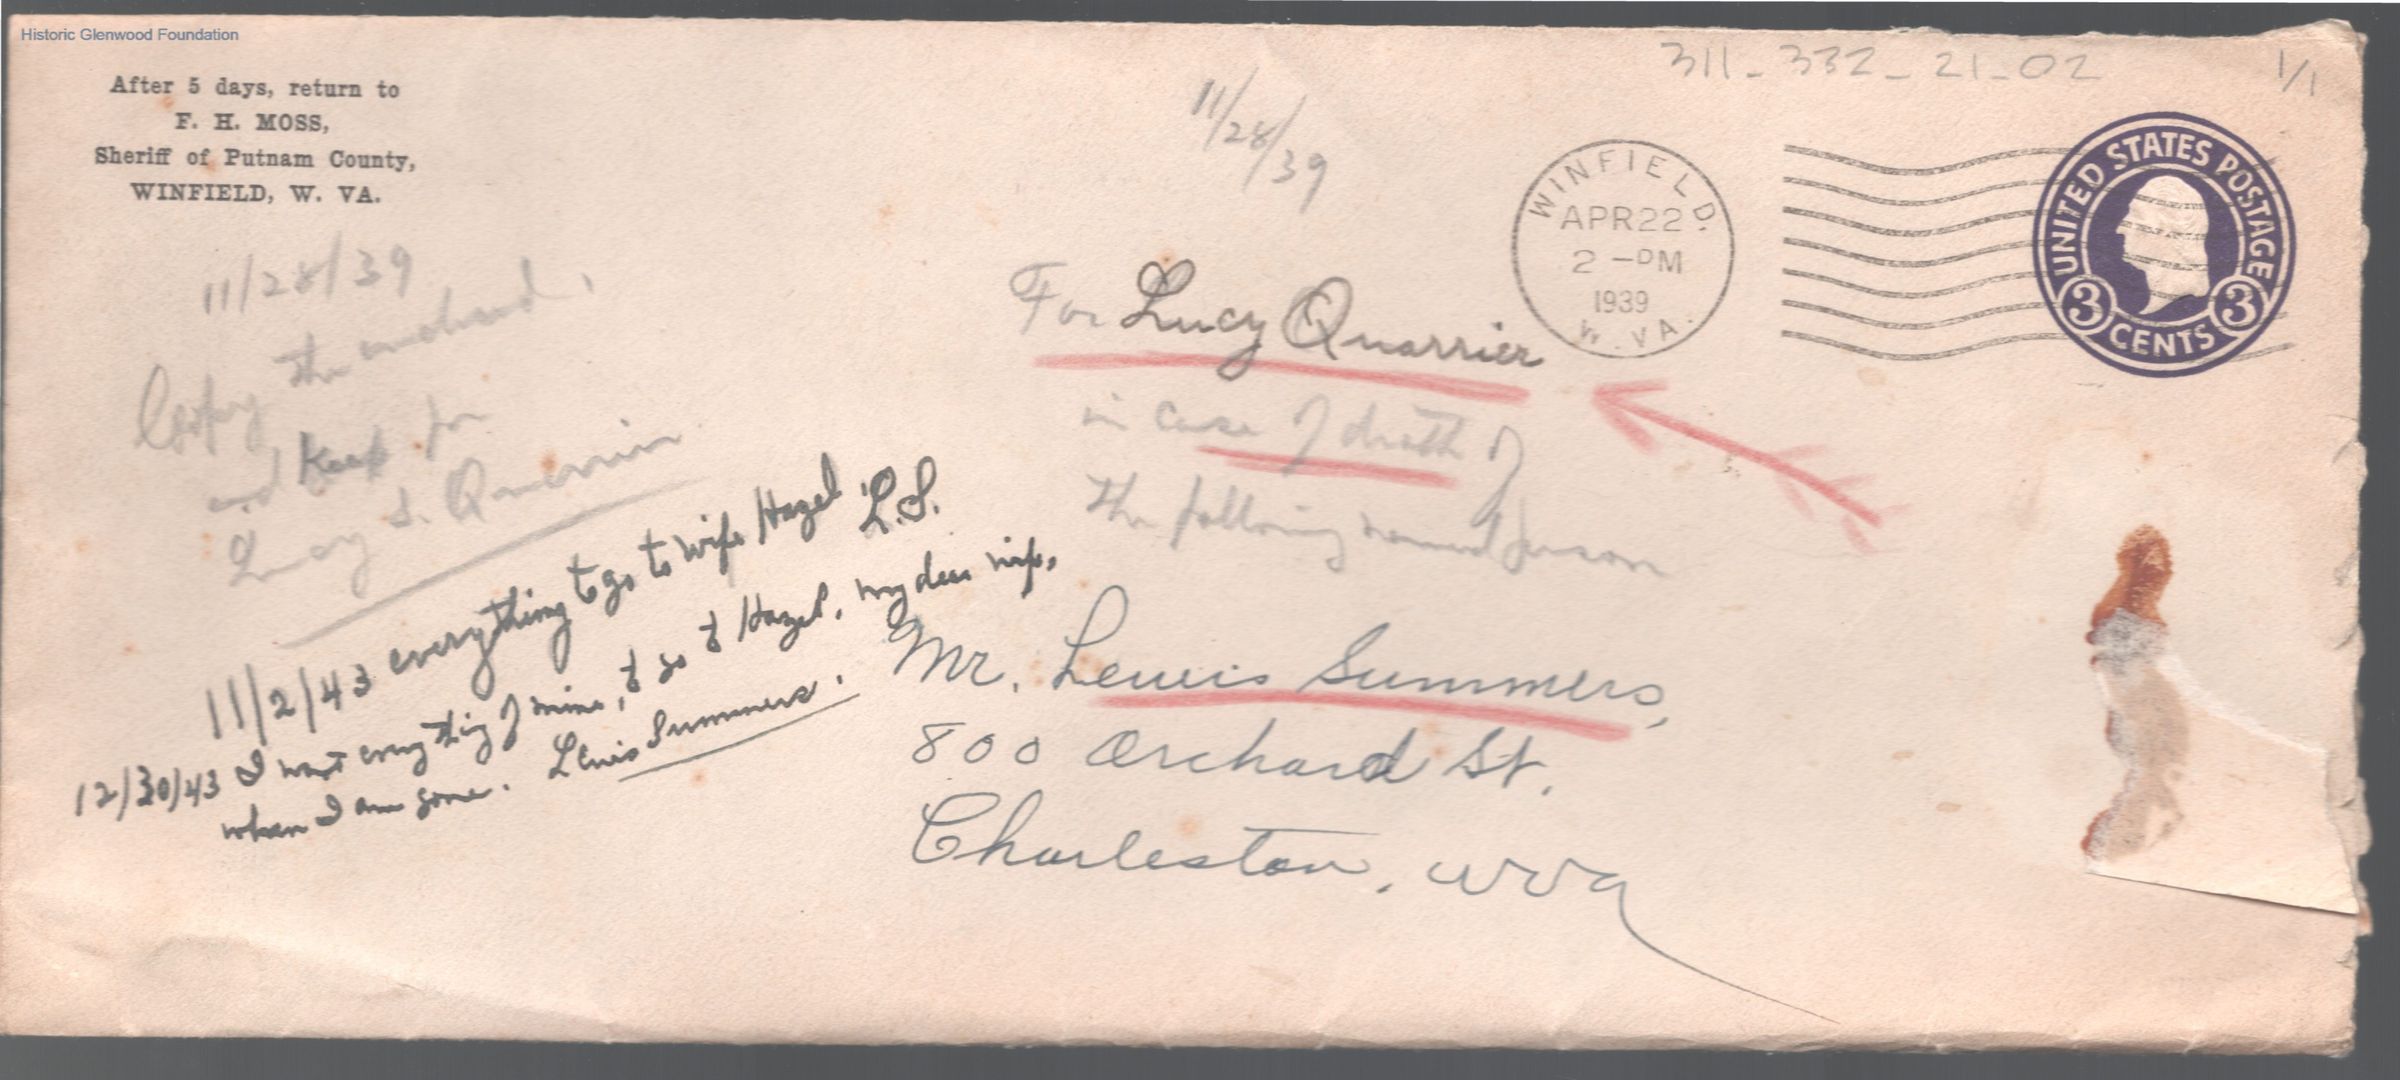 Historic Glenwood Foundation
311-332-21-02
1/1
After 5 days, return to
F. H. MOSS,
Sheriff of Putnam County,
WINFIELD, W. VA.
11/28/39
WINFIELD.
APR 22
2 - PM
1939
W. VA.
UNITED STATES POSTAGE
3 CENTS 3
11/28/39
the
and Keep for
Lucy S. Quarrier
For Lucy Quarrier
in case of death of
the following named person
Mr. Lewis Summers,
800 Orchard St.
Charleston, W Va
11/2/43 everything to go to wife Hazel. L.S.
12/30/43 I want everything of mine, to go to Hazel, my dear wife,
when I am gone. Lewis Summers.